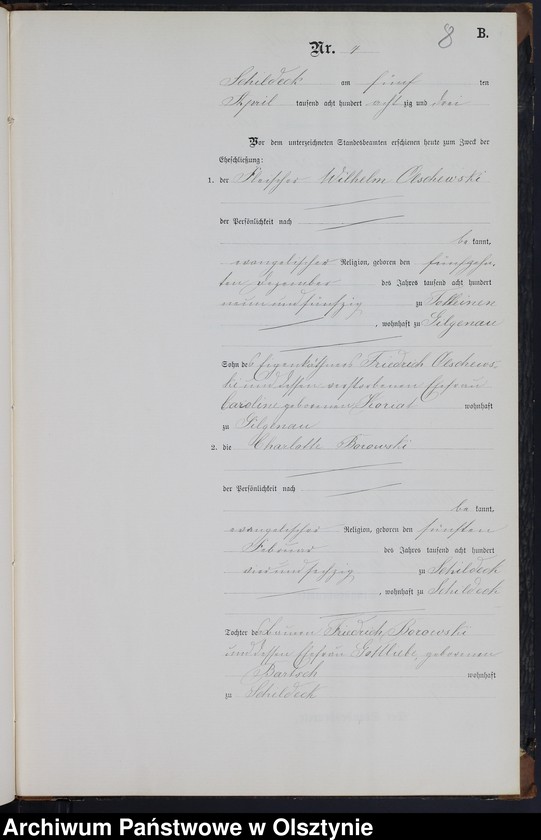 8 B.
Nr. 4
Schildeck am fünf ten
April tausend acht hundert achtzig und drei
Vor dem unterzeichneten Standesbeamten erschienen heute zum Zweck der
Eheschließung:
1. der Fleischer Wilhelm Olschewski
der Persönlichkeit nach
be kannt,
evangelischer Religion, geboren den fünfzehn-
ten Dezember des Jahres tausend acht hundert
neun und fünfzig zu
, wohnhaft zu Gilgenau
Sohn des Eigenkäthners Friedrich Olschews-
ki und dessen verstorbenen Ehefrau
Caroline geborenen wohnhaft
zu Gilgenau
2. die Charlotte Borowski
der Persönlichkeit nach
be kannt,
evangelischer Religion, geboren den fünften
Februar des Jahres tausend acht hundert
vier und sechzig zu Schildeck
, wohnhaft zu Schildeck
Tochter des Friedrich Borowski
und dessen Ehefrau Gottliebe, geborenen
Bartsch wohnhaft
zu Schildeck
Archiwum Państwowe w Olsztynie